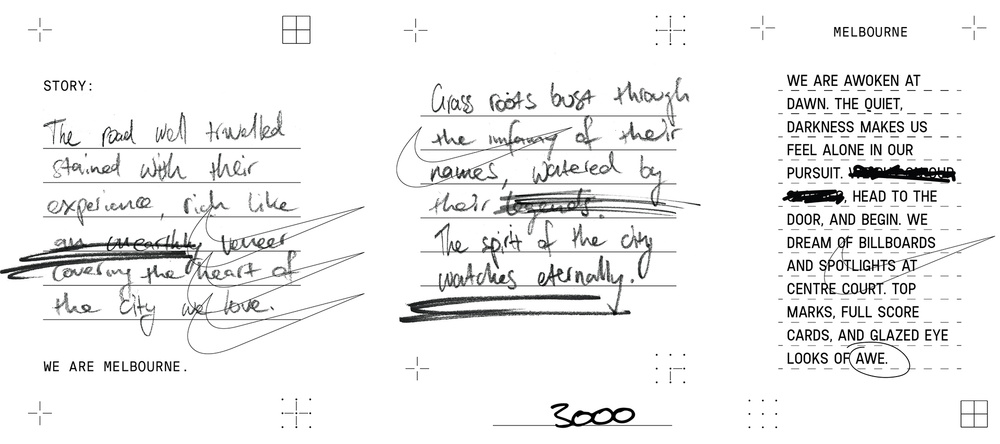 STORY:
The road well travelled
stained with their
experience, rich like
an unearthly veneer
covering the heart of
the city we love.
WE ARE MELBOURNE.
Grass roots bust through
the infamy of their
names, watered by
their legends.
The spirit of the city
watches eternally.
3000
MELBOURNE
WE ARE AWOKEN AT
DAWN. THE QUIET,
DARKNESS MAKES US
FEEL ALONE IN OUR
PURSUIT.
, HEAD TO THE
DOOR, AND BEGIN. WE
DREAM OF BILLBOARDS
AND SPOTLIGHTS AT
CENTRE COURT. TOP
MARKS, FULL SCORE
CARDS, AND GLAZED EYE
LOOKS OF AWE.